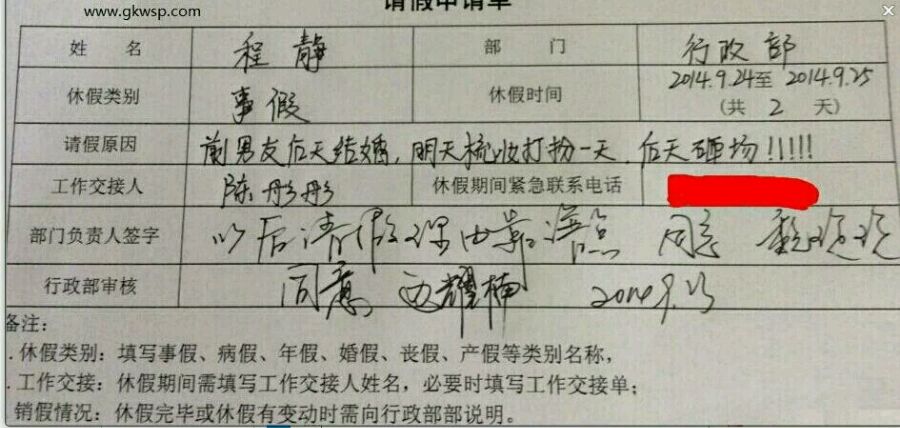 www.gkwsp.com
请假申请单
姓 名 程静 部 门 行政部
休假类别 事假 休假时间 2014.9.24至 2014.9.25
(共 2 天)
请假原因 前男友后天结婚，明天梳妆打扮一天，后天砸场!!!!!
工作交接人 陈彤彤 休假期间紧急联系电话
部门负责人签字 以后请假理由靠谱点 同意
行政部审核 同意 耀楠 2014.9.23
备注：
. 休假类别：填写事假、病假、年假、婚假、丧假、产假等类别名称，
. 工作交接：休假期间需填写工作交接人姓名，必要时填写工作交接单；
销假情况：休假完毕或休假有变动时需向行政部部说明。